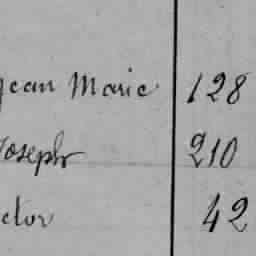 Jean Marie 128
Joseph 210
ctor 42